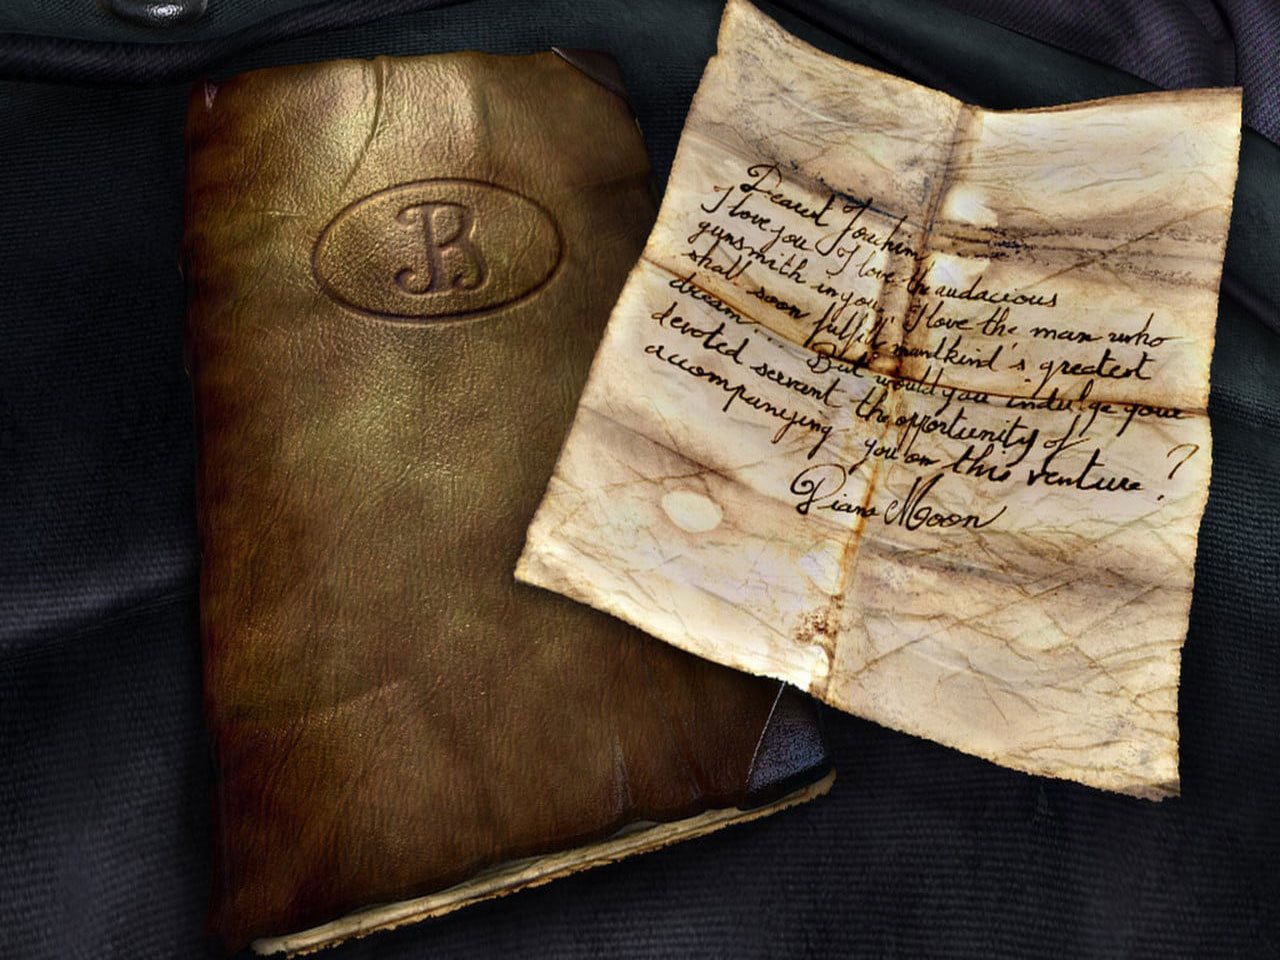 B
Dearest Joachim
I love you. I love the audacious
gunsmith in you. I love the man who
shall soon fulfill mandkind's greatest
dream... But would you indulge your
devoted servant the opportunity of
accompanying you on this venture?
Diana Moon